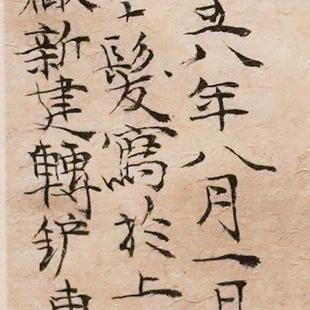 五八年八月一日
髮寫於上
廠新建轉鈩車